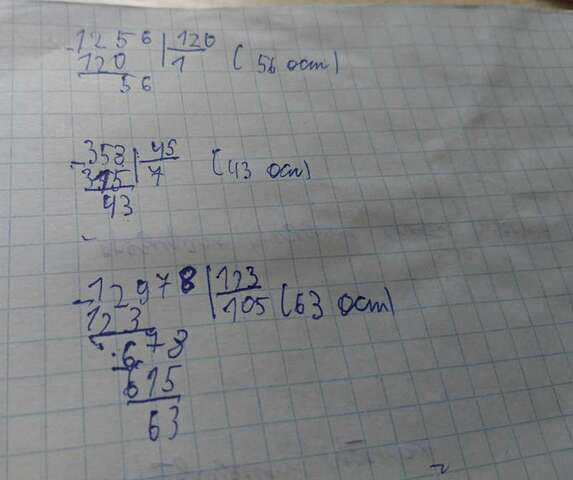 -1256 | 120
120 | 1 (56 ост)
56
-358 | 45
315 | 7 (43 ост)
43
-12978 | 123
123 | 105 (63 ост)
-678
615
63